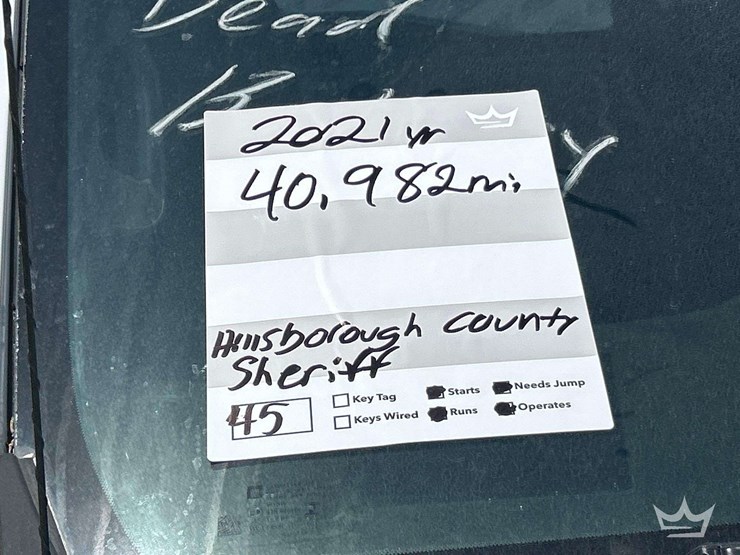 Dead
2021 yr
40,982 mi
Hillsborough County
Sheriff
45
Key Tag
Starts
Needs Jump
Keys Wired
Runs
Operates